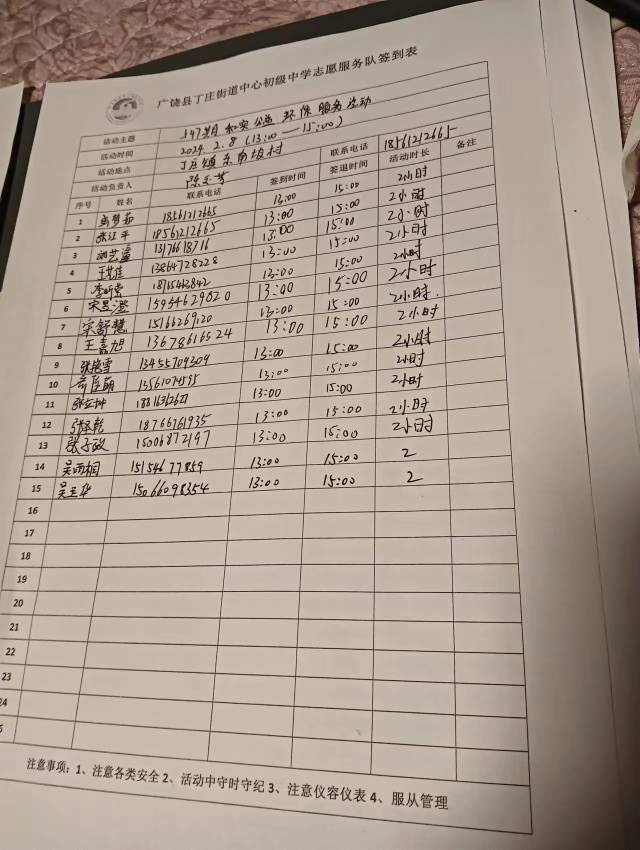 广饶县丁庄街道中心初级中学志愿服务队签到表
活动主题 347期 和安公益 环保服务活动
活动时间 2024.2.8 (13:00—15:00)
活动地点 丁庄镇东南坡村
活动负责人 联系电话 18561212665
序号 姓名 联系电话 签到时间 签退时间 活动时长 备注
1 18561212665 13:00 15:00 2小时
2 张江平 18561212665 13:00 15:00 2小时
3 13176618716 13:00 15:00 2小时
4 王梵佳 13864728228 13:00 15:00 2小时
5 李昕蓉 13:00 15:00 2小时
6 宋昱澄 15954629020 13:00 15:00 2小时
7 宋舒慧 15166269120 13:00 15:00 2小时
8 王嘉旭 13678616524 13:00 15:00 2小时
9 张艳雪 13455709309 13:00 15:00 2小时
10 13561074595 13:00 15:00 2小时
11 13:00 15:00 2小时
12 18766761935 13:00 15:00 2小时
13 张子政 15006872197 13:00 15:00 2小时
14 吴雨桐 15154677859 13:00 15:00 2
15 15066098354 13:00 15:00 2
16
17
18
19
20
21
22
23
24
注意事项：1、注意各类安全 2、活动中守时守纪 3、注意仪容仪表 4、服从管理